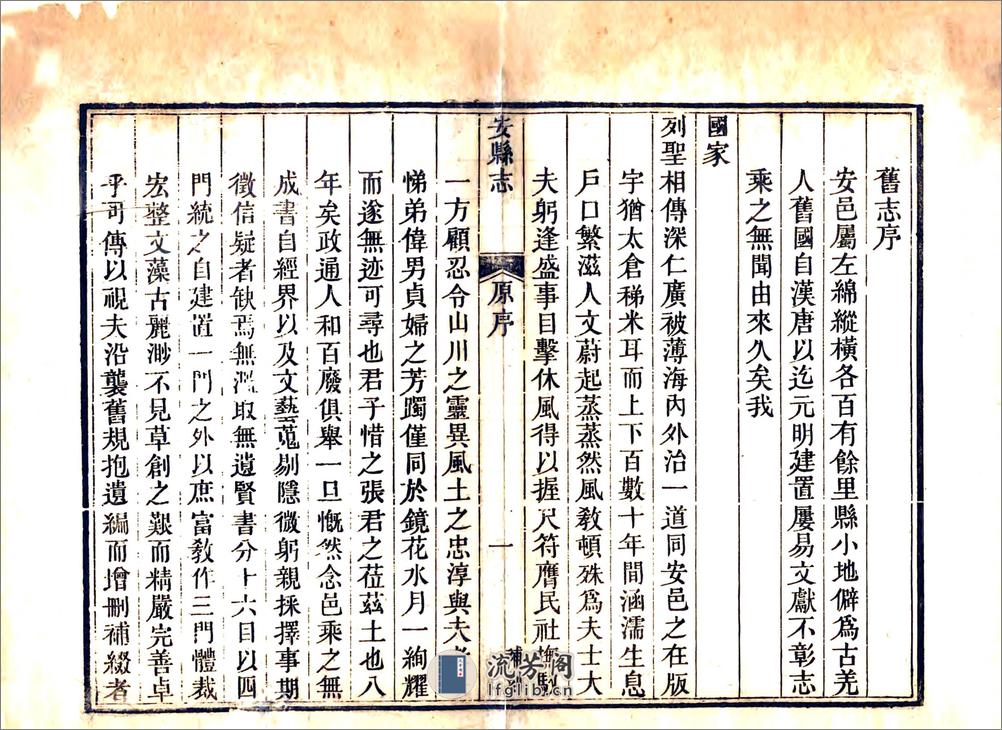 舊志序
安邑屬左綿縱橫各百有餘里縣小地僻爲古羌
人舊國自漢唐以迄元明建置屢易文獻不彰志
乘之無聞由來久矣我
國家
列聖相傳深仁廣被薄海內外治一道同安邑之在版
宇猶太倉稊米耳而上下百數十年間涵濡生息
戶口繁滋人文蔚起蒸蒸然風敎頓殊爲夫士大
夫躬逢盛事目擊休風得以握尺符膺民社撫馭
安縣志
原序
一
補刻
一方顧忍令山川之靈異風土之忠淳與夫孝
悌弟偉男貞婦之芳躅僅同於鏡花水月一絢耀
而遂無迹可尋也君子惜之張君之莅茲土也八
年矣政通人和百廢俱舉一旦慨然念邑乘之無
成書自經界以及文藝蒐剔隱微躬親採擇事期
徵信疑者缺焉無濫取無遺賢書分上六目以四
門統之自建置一門之外以庶富敎作三門體裁
宏整文藻古麗渺不見草創之艱而精嚴完善卓
乎可傳以視夫沿襲舊規抱遺編而增刪補綴者
流芳阁
lfglib.cn